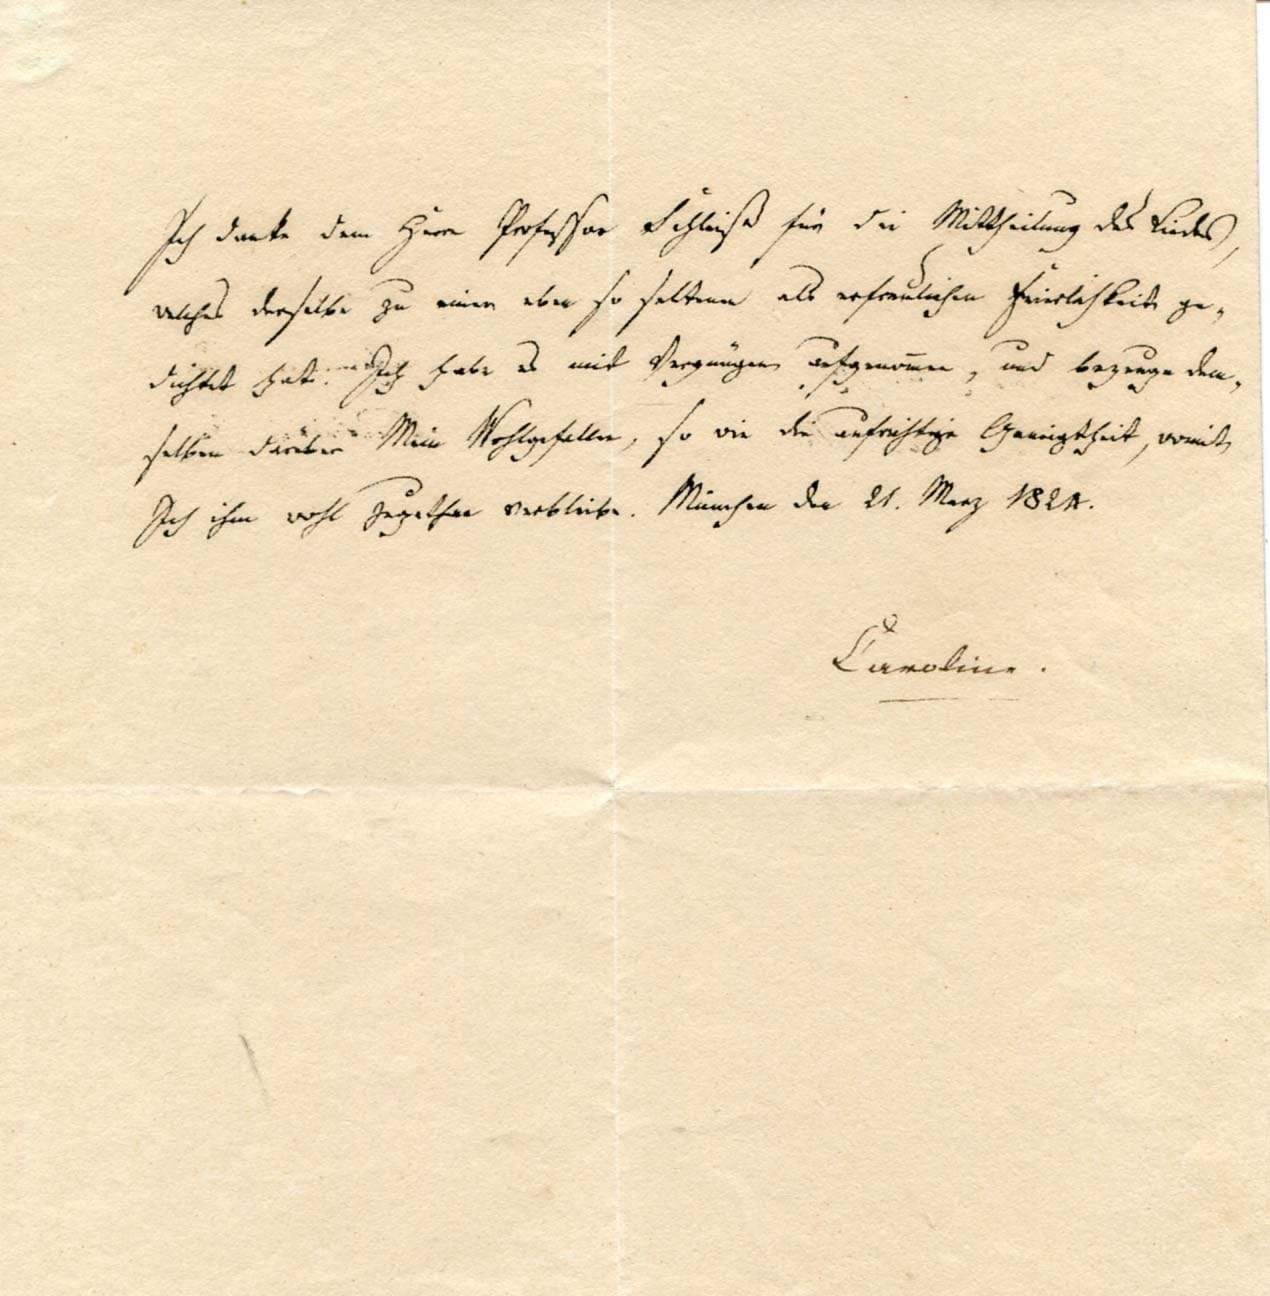 Ich danke dem Herrn Professor Schleiß für die Mittheilung des Liedes,
welches derselbe zu einer eben so seltenen als erfreulichen Feierlichkeit ge-
dichtet hat. Ich habe es mit Vergnügen aufgenom̄en, und bezeuge dem-
selben darüber Mein Wohlgefallen, so wie die aufrichtige Geneigtheit, womit
Ich ihm wohl zugethan verbleibe. München den 21. Merz 1824.
Caroline.